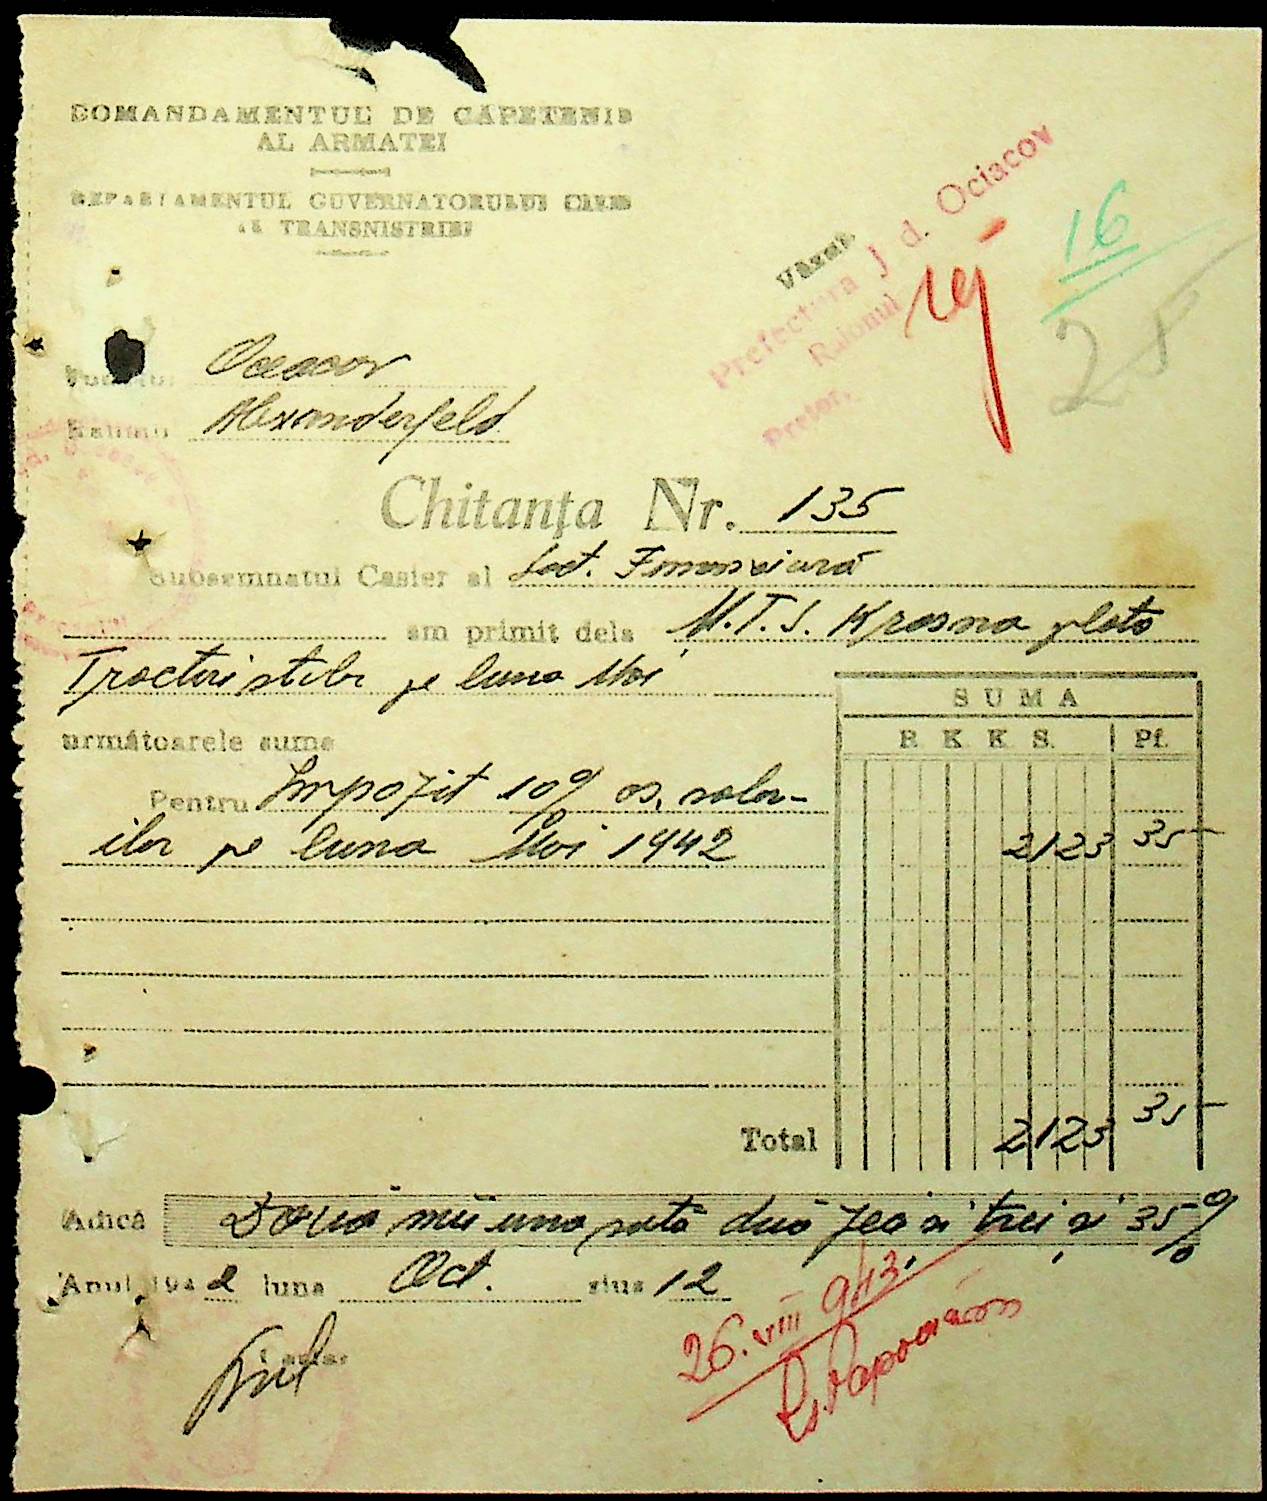 COMANDAMENTUL DE CĂPETENIE
AL ARMATEI
DEPARTAMENTUL GUVERNATORULUI CIVIL
AL TRANSNISTRIEI
Văzut
Prefectura Jud. Ociacov
Raionul
Pretor,
16
25
Județul Oceacov
Raionul Alexanderfeld
Chitanța Nr. 135
Subsemnatul Casier al Sect. Financiară
am primit dela M.T.S. Krasna plata
Tractoriștilor pe luna Mai
următoarele sume
SUMA
R. K. K. S. Pf.
Pentru Impozit 10%
ilor pe luna Mai 1942 2123 35
Total 2123 35
Adică Două mii una sută două zeci și trei și 35 %
Anul 1942 luna Oct. ziua 12
Casier
26.VIII 943.